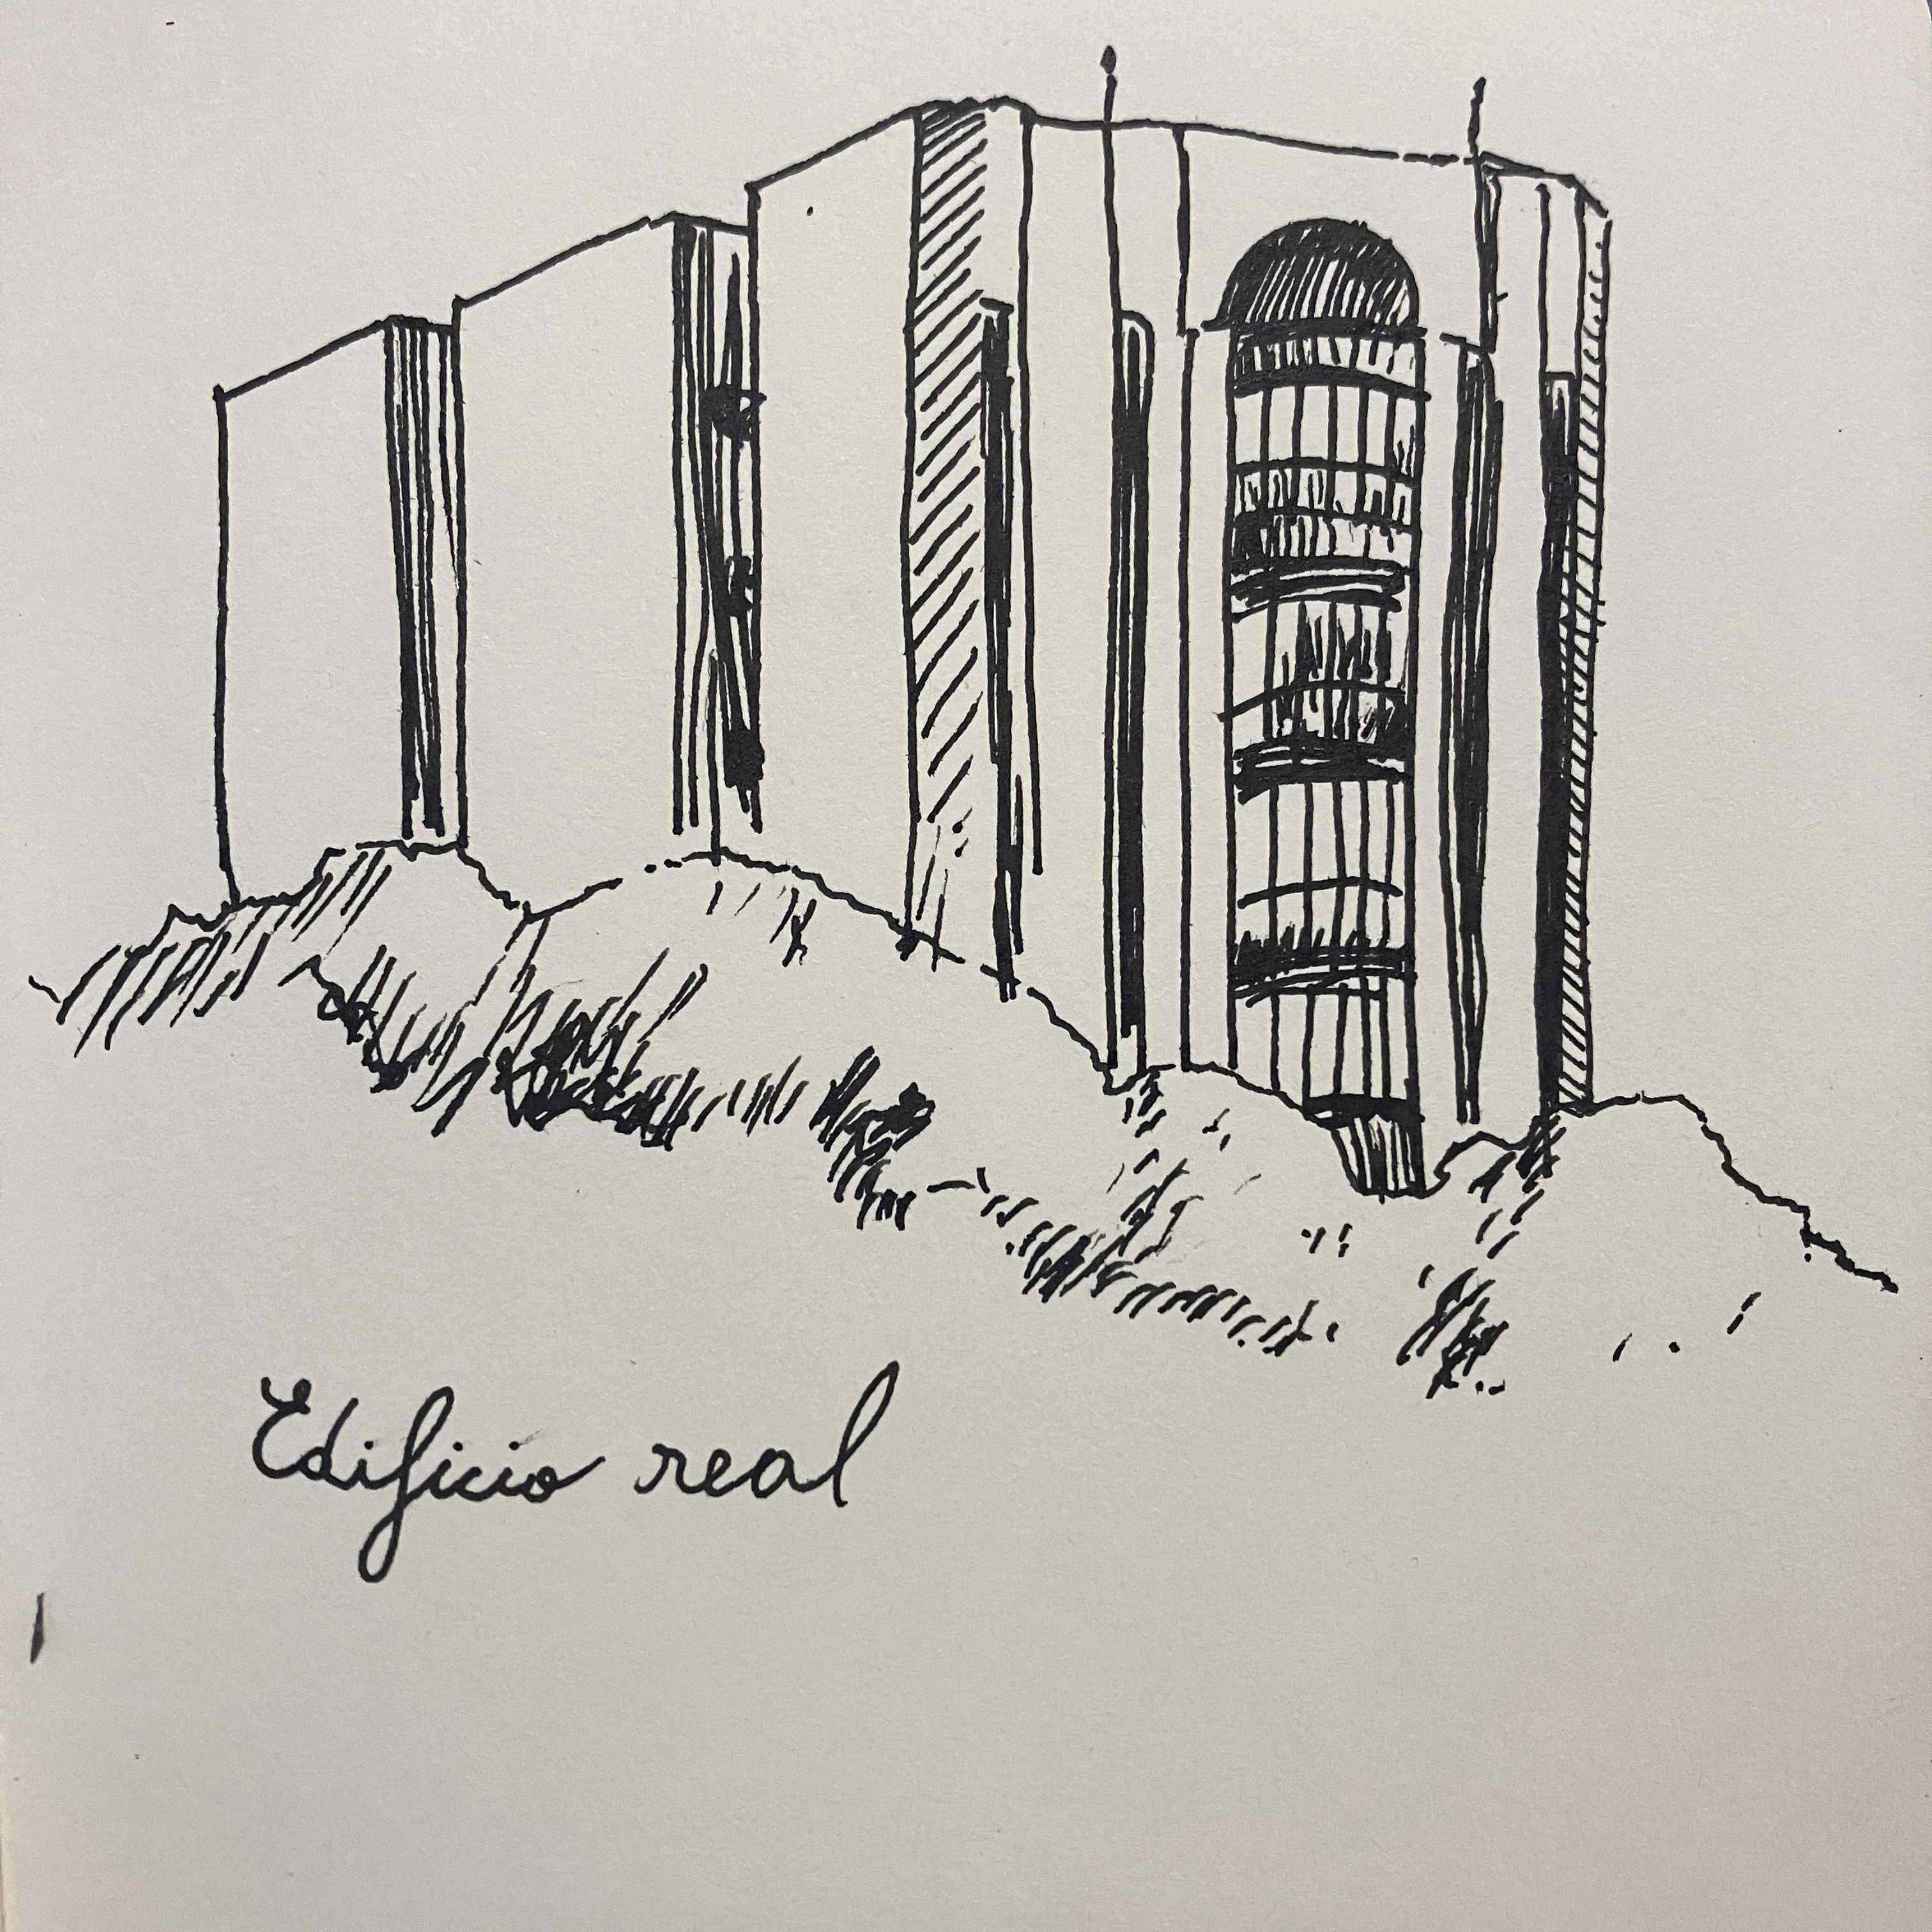 Edificio real